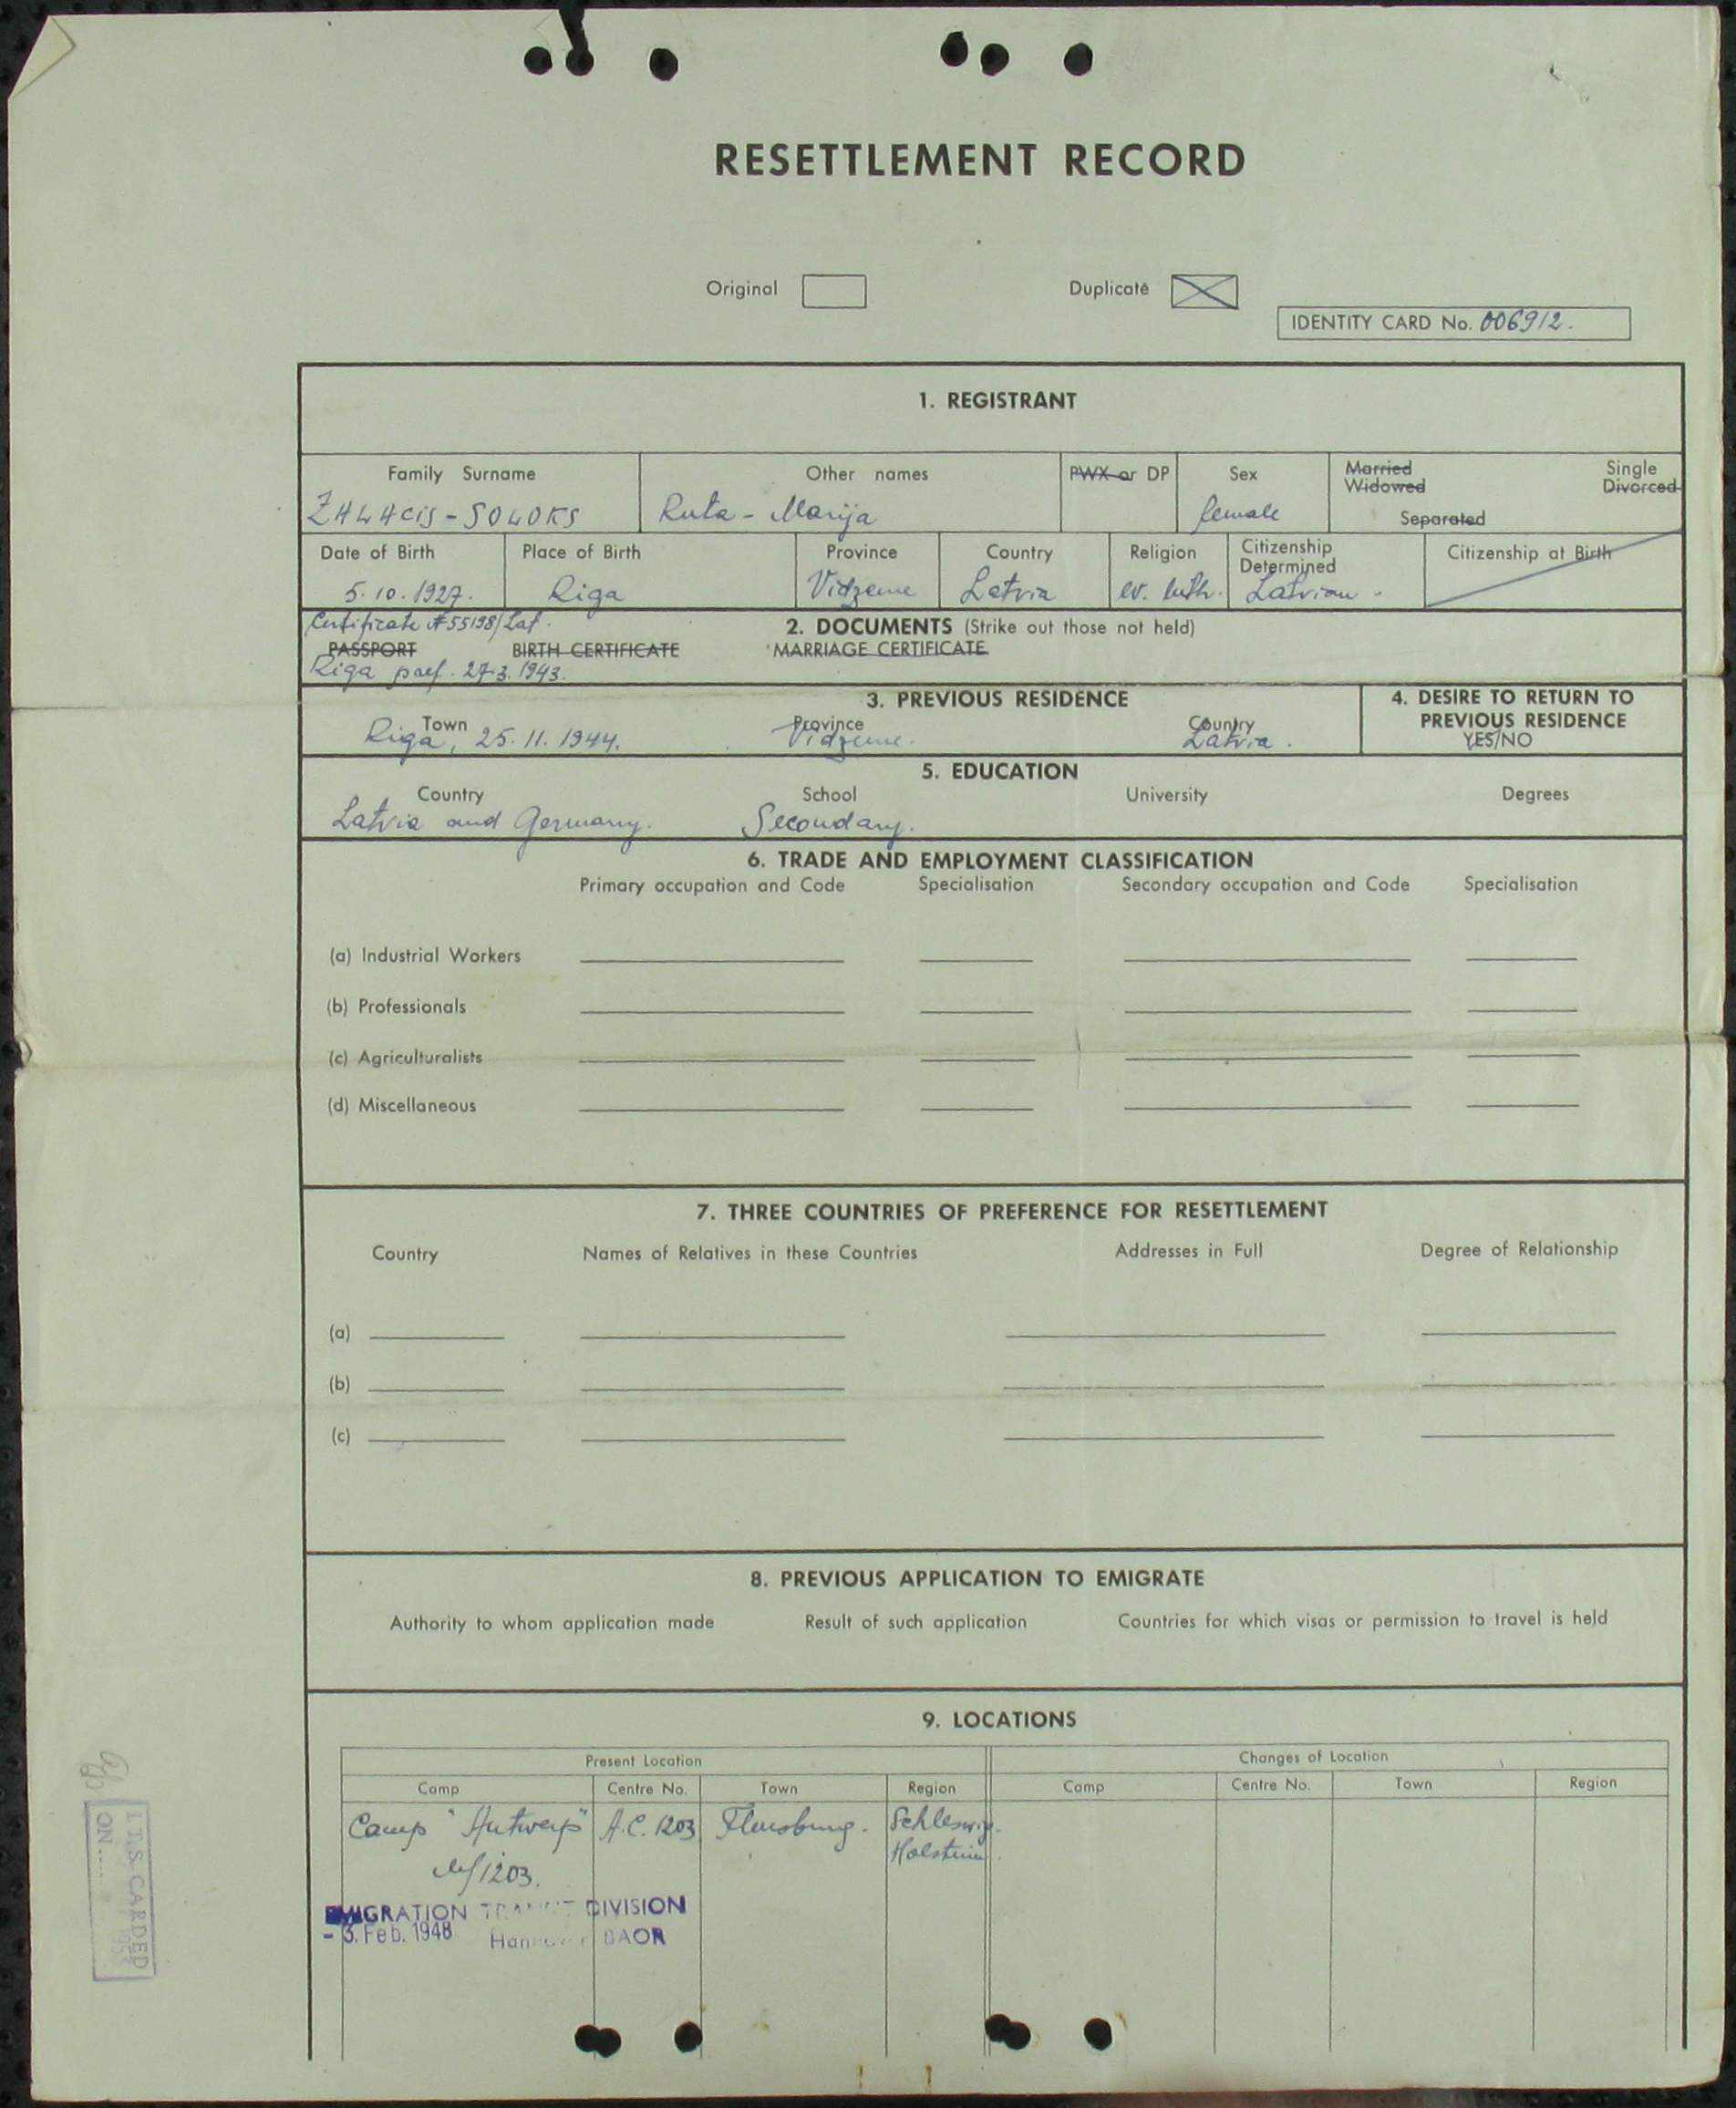 RESETTLEMENT RECORD
Original
Duplicate
IDENTITY CARD No. 006912.
1. REGISTRANT
Family Surname Other names PWX or DP Sex Married Single
Widowed Divorced
Separated
ZALACIS-SOLOKS Ruta - Marija female
Date of Birth Place of Birth Province Country Religion Citizenship Determined Citizenship at Birth
5.10.1927. Riga Vidzeme Latvia ev. luth. Latvian.
Certificate № 55198/Lat.
2. DOCUMENTS (Strike out those not held)
PASSPORT BIRTH CERTIFICATE MARRIAGE CERTIFICATE
Riga pref. 27.3.1943.
3. PREVIOUS RESIDENCE
Town Province Country
Riga, 25.11.1944. Vidzeme. Latvia.
4. DESIRE TO RETURN TO
PREVIOUS RESIDENCE
YES/NO
5. EDUCATION
Country School University Degrees
Latvia and Germany. Secondary.
6. TRADE AND EMPLOYMENT CLASSIFICATION
Primary occupation and Code Specialisation Secondary occupation and Code Specialisation
(a) Industrial Workers
(b) Professionals
(c) Agriculturalists
(d) Miscellaneous
7. THREE COUNTRIES OF PREFERENCE FOR RESETTLEMENT
Country Names of Relatives in these Countries Addresses in Full Degree of Relationship
(a)
(b)
(c)
8. PREVIOUS APPLICATION TO EMIGRATE
Authority to whom application made Result of such application Countries for which visas or permission to travel is held
9. LOCATIONS
Present Location Changes of Location
Camp Centre No. Town Region Camp Centre No. Town Region
Camp "Antwerp" A.C. 1203 Flensburg. Schleswig.
Holstein.
1203.
EMIGRATION TRANSIT DIVISION
- 3. Feb. 1948 Hannover BAOR
I.T.S. CARDED
ON